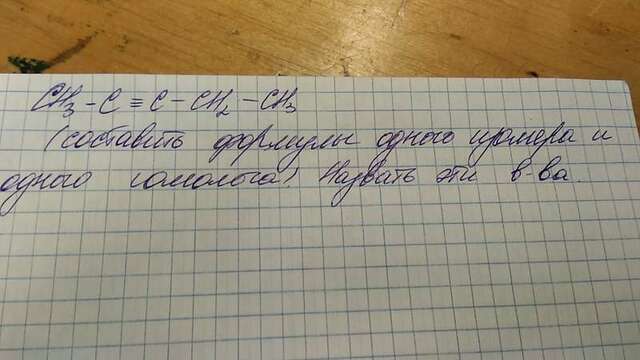 CH₃ - C ≡ C - CH₂ - CH₃
(составить формулы одного изомера и
одного гомолога). Назвать эти в-ва.